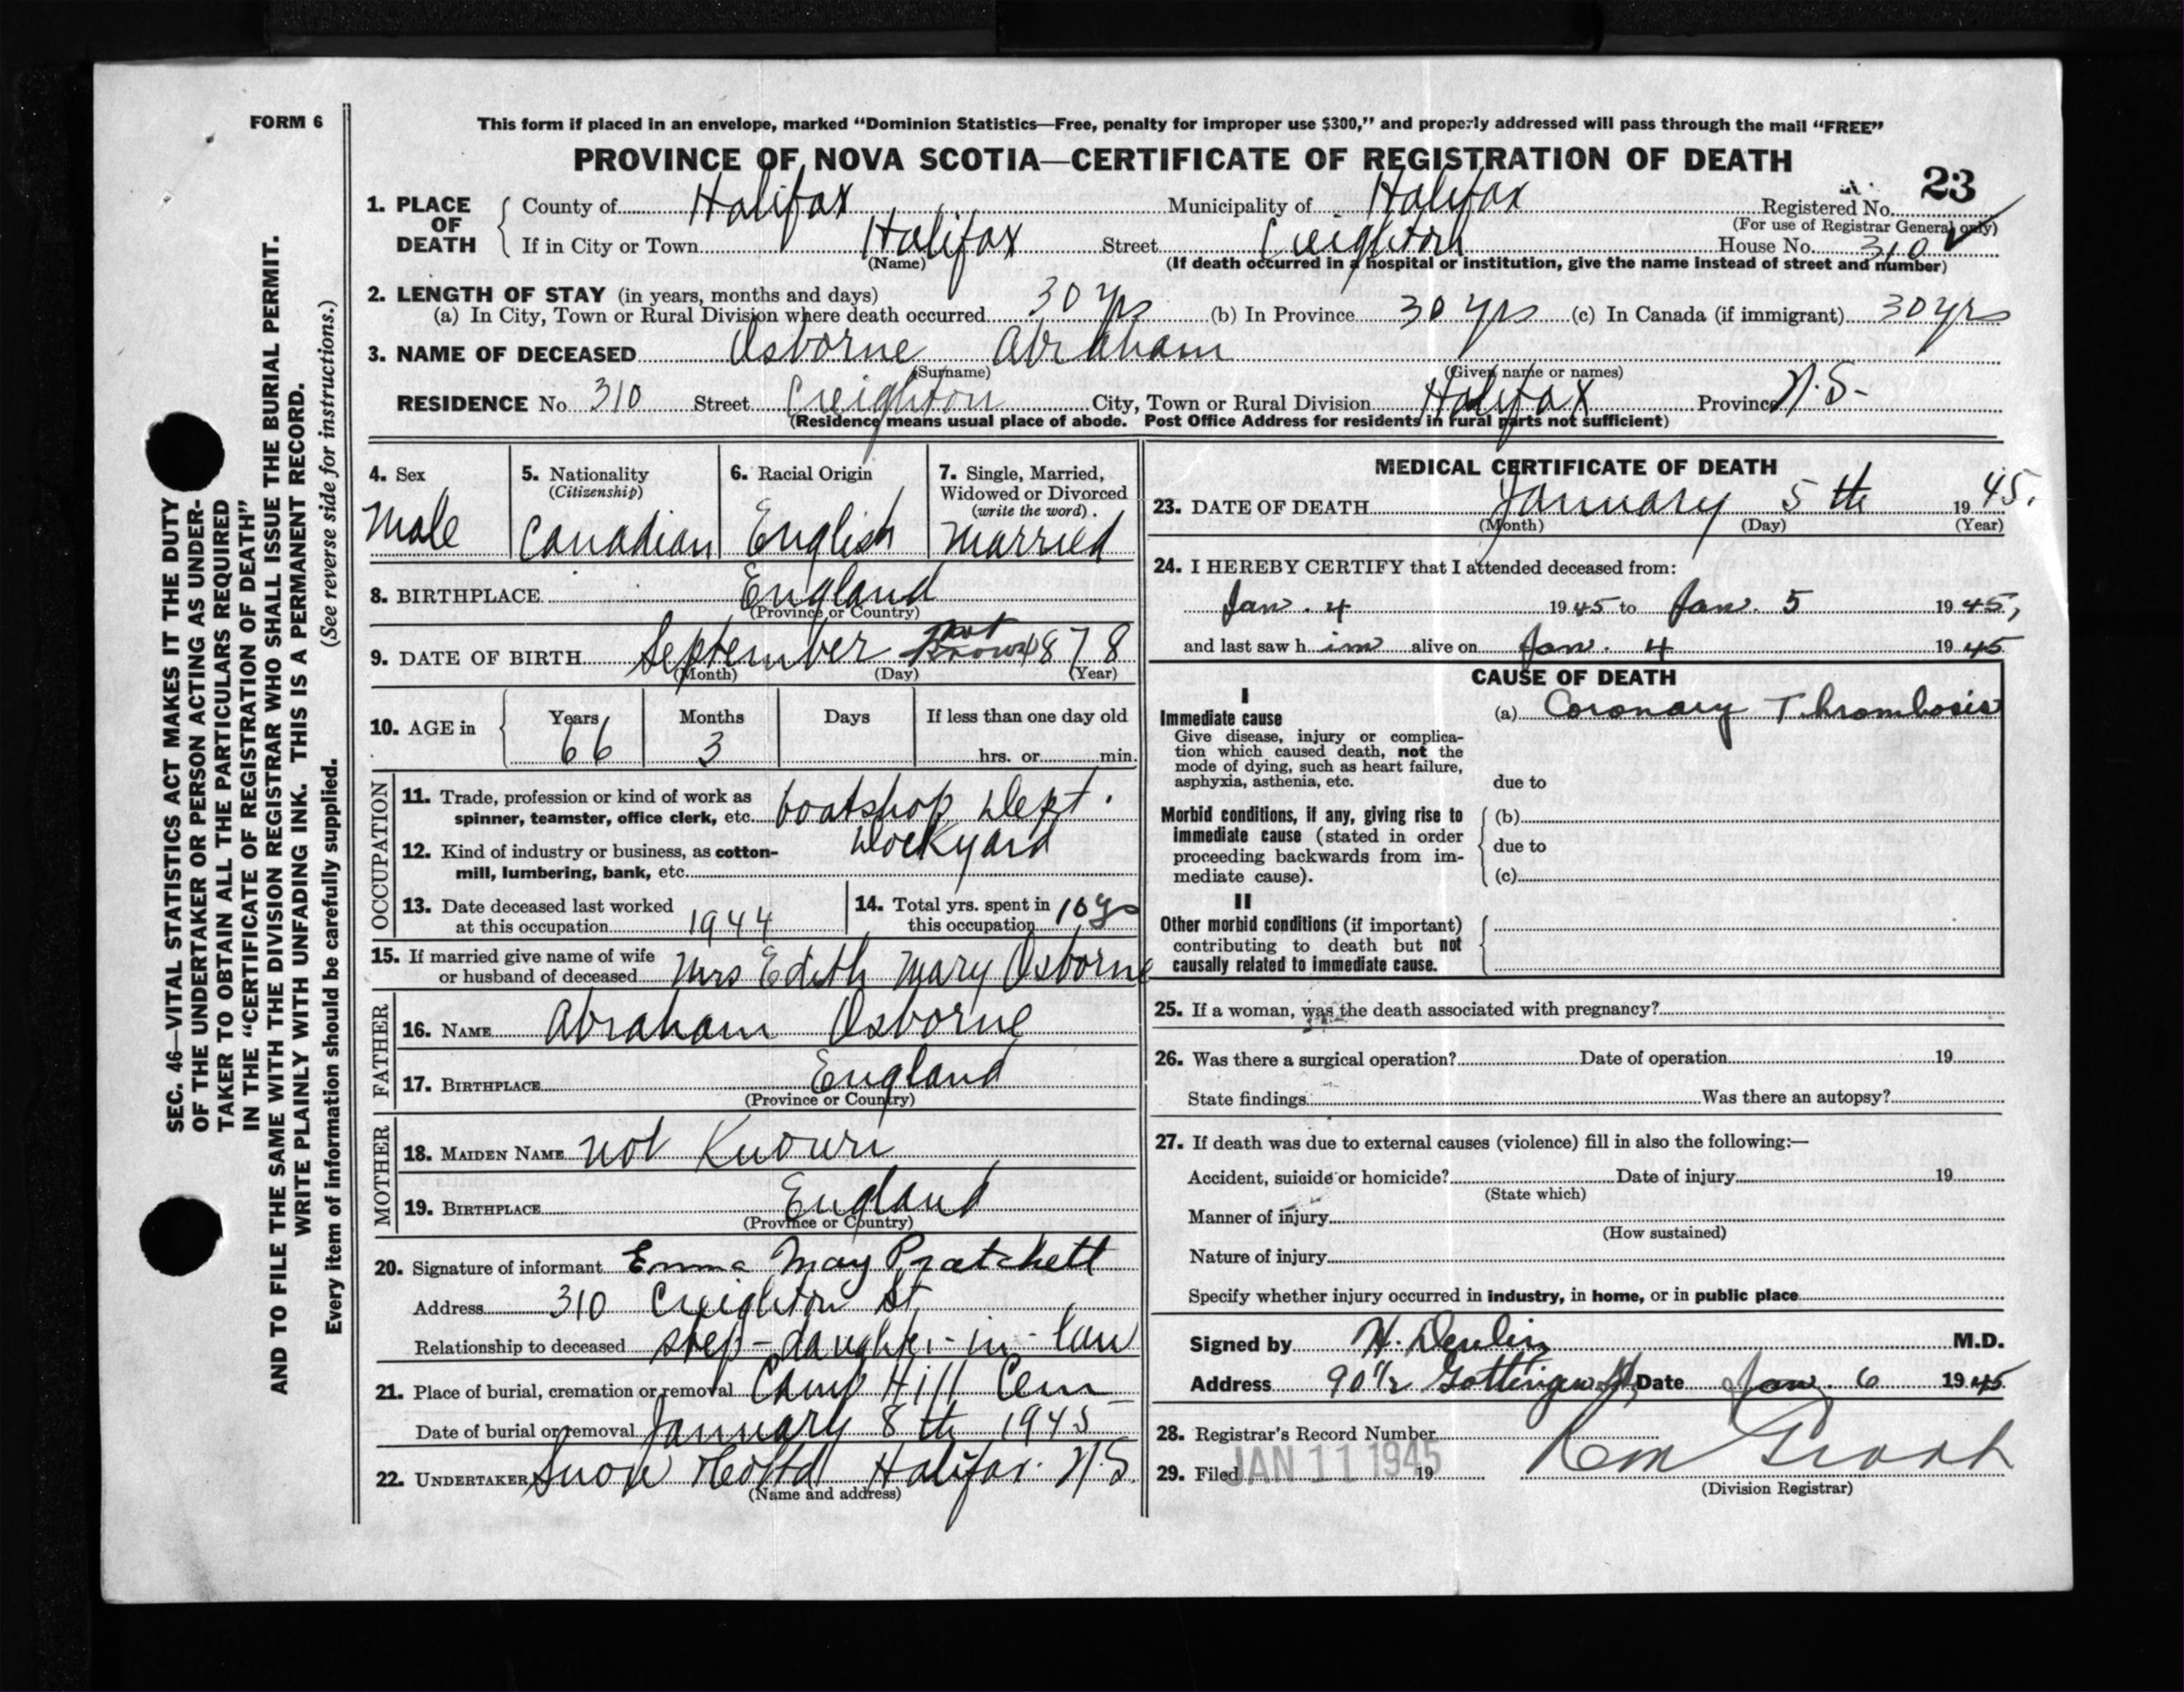 FORM 6
This form if placed in an envelope, marked “Dominion Statistics—Free, penalty for improper use $300,” and properly addressed will pass through the mail “FREE”
PROVINCE OF NOVA SCOTIA—CERTIFICATE OF REGISTRATION OF DEATH
23
1. PLACE OF DEATH County of Halifax Municipality of Halifax Registered No.
(For use of Registrar General only)
If in City or Town Halifax Street Creighton House No. 310
(Name) (If death occurred in a hospital or institution, give the name instead of street and number)
2. LENGTH OF STAY (in years, months and days)
(a) In City, Town or Rural Division where death occurred 30 yrs (b) In Province 30 yrs (c) In Canada (if immigrant) 30 yrs
3. NAME OF DECEASED Osborne Abraham
(Surname) (Given name or names)
RESIDENCE No. 310 Street Creighton City, Town or Rural Division Halifax Province N.S.
(Residence means usual place of abode. Post Office Address for residents in rural parts not sufficient)
4. Sex
Male
5. Nationality
(Citizenship)
Canadian
6. Racial Origin
English
7. Single, Married,
Widowed or Divorced
(write the word).
Married
8. BIRTHPLACE England
(Province or Country)
9. DATE OF BIRTH September not known 1878
(Month) (Day) (Year)
10. AGE in Years Months Days If less than one day old
66 3 hrs. or min.
OCCUPATION
11. Trade, profession or kind of work as
spinner, teamster, office clerk, etc. boatshop Dept.
12. Kind of industry or business, as cotton- Dockyard
mill, lumbering, bank, etc.
13. Date deceased last worked
at this occupation 1944
14. Total yrs. spent in
this occupation 10 yrs
15. If married give name of wife
or husband of deceased Mrs Edith Mary Osborne
FATHER
16. NAME Abraham Osborne
17. BIRTHPLACE England
(Province or Country)
MOTHER
18. MAIDEN NAME not Known
19. BIRTHPLACE England
(Province or Country)
20. Signature of informant Emma May Pratchett
Address 310 Creighton St
Relationship to deceased step-daughter-in-law
21. Place of burial, cremation or removal Camp Hill Cem
Date of burial or removal January 8th 1945
22. UNDERTAKER Snow Halifax N.S.
(Name and address)
MEDICAL CERTIFICATE OF DEATH
23. DATE OF DEATH January 5th 1945.
(Month) (Day) (Year)
24. I HEREBY CERTIFY that I attended deceased from:
Jan. 4 1945 to Jan. 5 1945,
and last saw him alive on Jan. 4 1945
CAUSE OF DEATH
I
Immediate cause (a) Coronary Thrombosis
Give disease, injury or complica-
tion which caused death, not the
mode of dying, such as heart failure,
asphyxia, asthenia, etc. due to
Morbid conditions, if any, giving rise to (b)
immediate cause (stated in order due to
proceeding backwards from im-
mediate cause). (c)
II
Other morbid conditions (if important)
contributing to death but not
causally related to immediate cause.
25. If a woman, was the death associated with pregnancy?
26. Was there a surgical operation? Date of operation 19
State findings Was there an autopsy?
27. If death was due to external causes (violence) fill in also the following:—
Accident, suicide or homicide? Date of injury 19
(State which)
Manner of injury
(How sustained)
Nature of injury
Specify whether injury occurred in industry, in home, or in public place
Signed by H. Devlin M.D.
Address 90½ Gottingen St, Date Jan. 6 1945
28. Registrar's Record Number
29. Filed JAN 11 1945 19
(Division Registrar)
SEC. 46—VITAL STATISTICS ACT MAKES IT THE DUTY
OF THE UNDERTAKER OR PERSON ACTING AS UNDER-
TAKER TO OBTAIN ALL THE PARTICULARS REQUIRED
IN THE “CERTIFICATE OF REGISTRATION OF DEATH”
AND TO FILE THE SAME WITH THE DIVISION REGISTRAR WHO SHALL ISSUE THE BURIAL PERMIT.
WRITE PLAINLY WITH UNFADING INK. THIS IS A PERMANENT RECORD.
Every item of information should be carefully supplied. (See reverse side for instructions.)